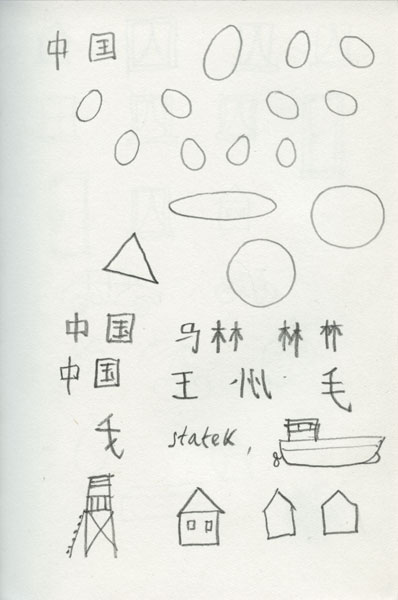 中国
中国 乌林 林 林
中国 王 州 毛
statek,